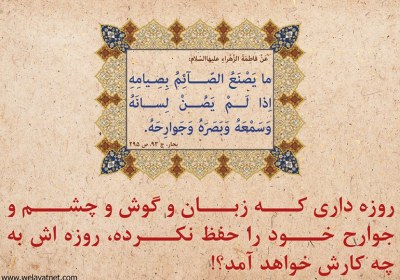 عَنْ فاطِمَةُ الزَّهْراء علیهاالسّلام:
ما یَصْنَعُ الصّائِمُ بِصِیامِهِ
اِذا لَمْ یَصُنْ لِسانَهُ
وَسَمْعَهُ وَبَصَرَهُ وَجَوارِحَهُ.
بحار، ج ۹۳، ص ۲۹۵
روزه داری که زبان و گوش و چشم و
جوارح خود را حفظ نکرده، روزه اش به
چه کارش خواهد آمد؟!
www.welayatnet.com